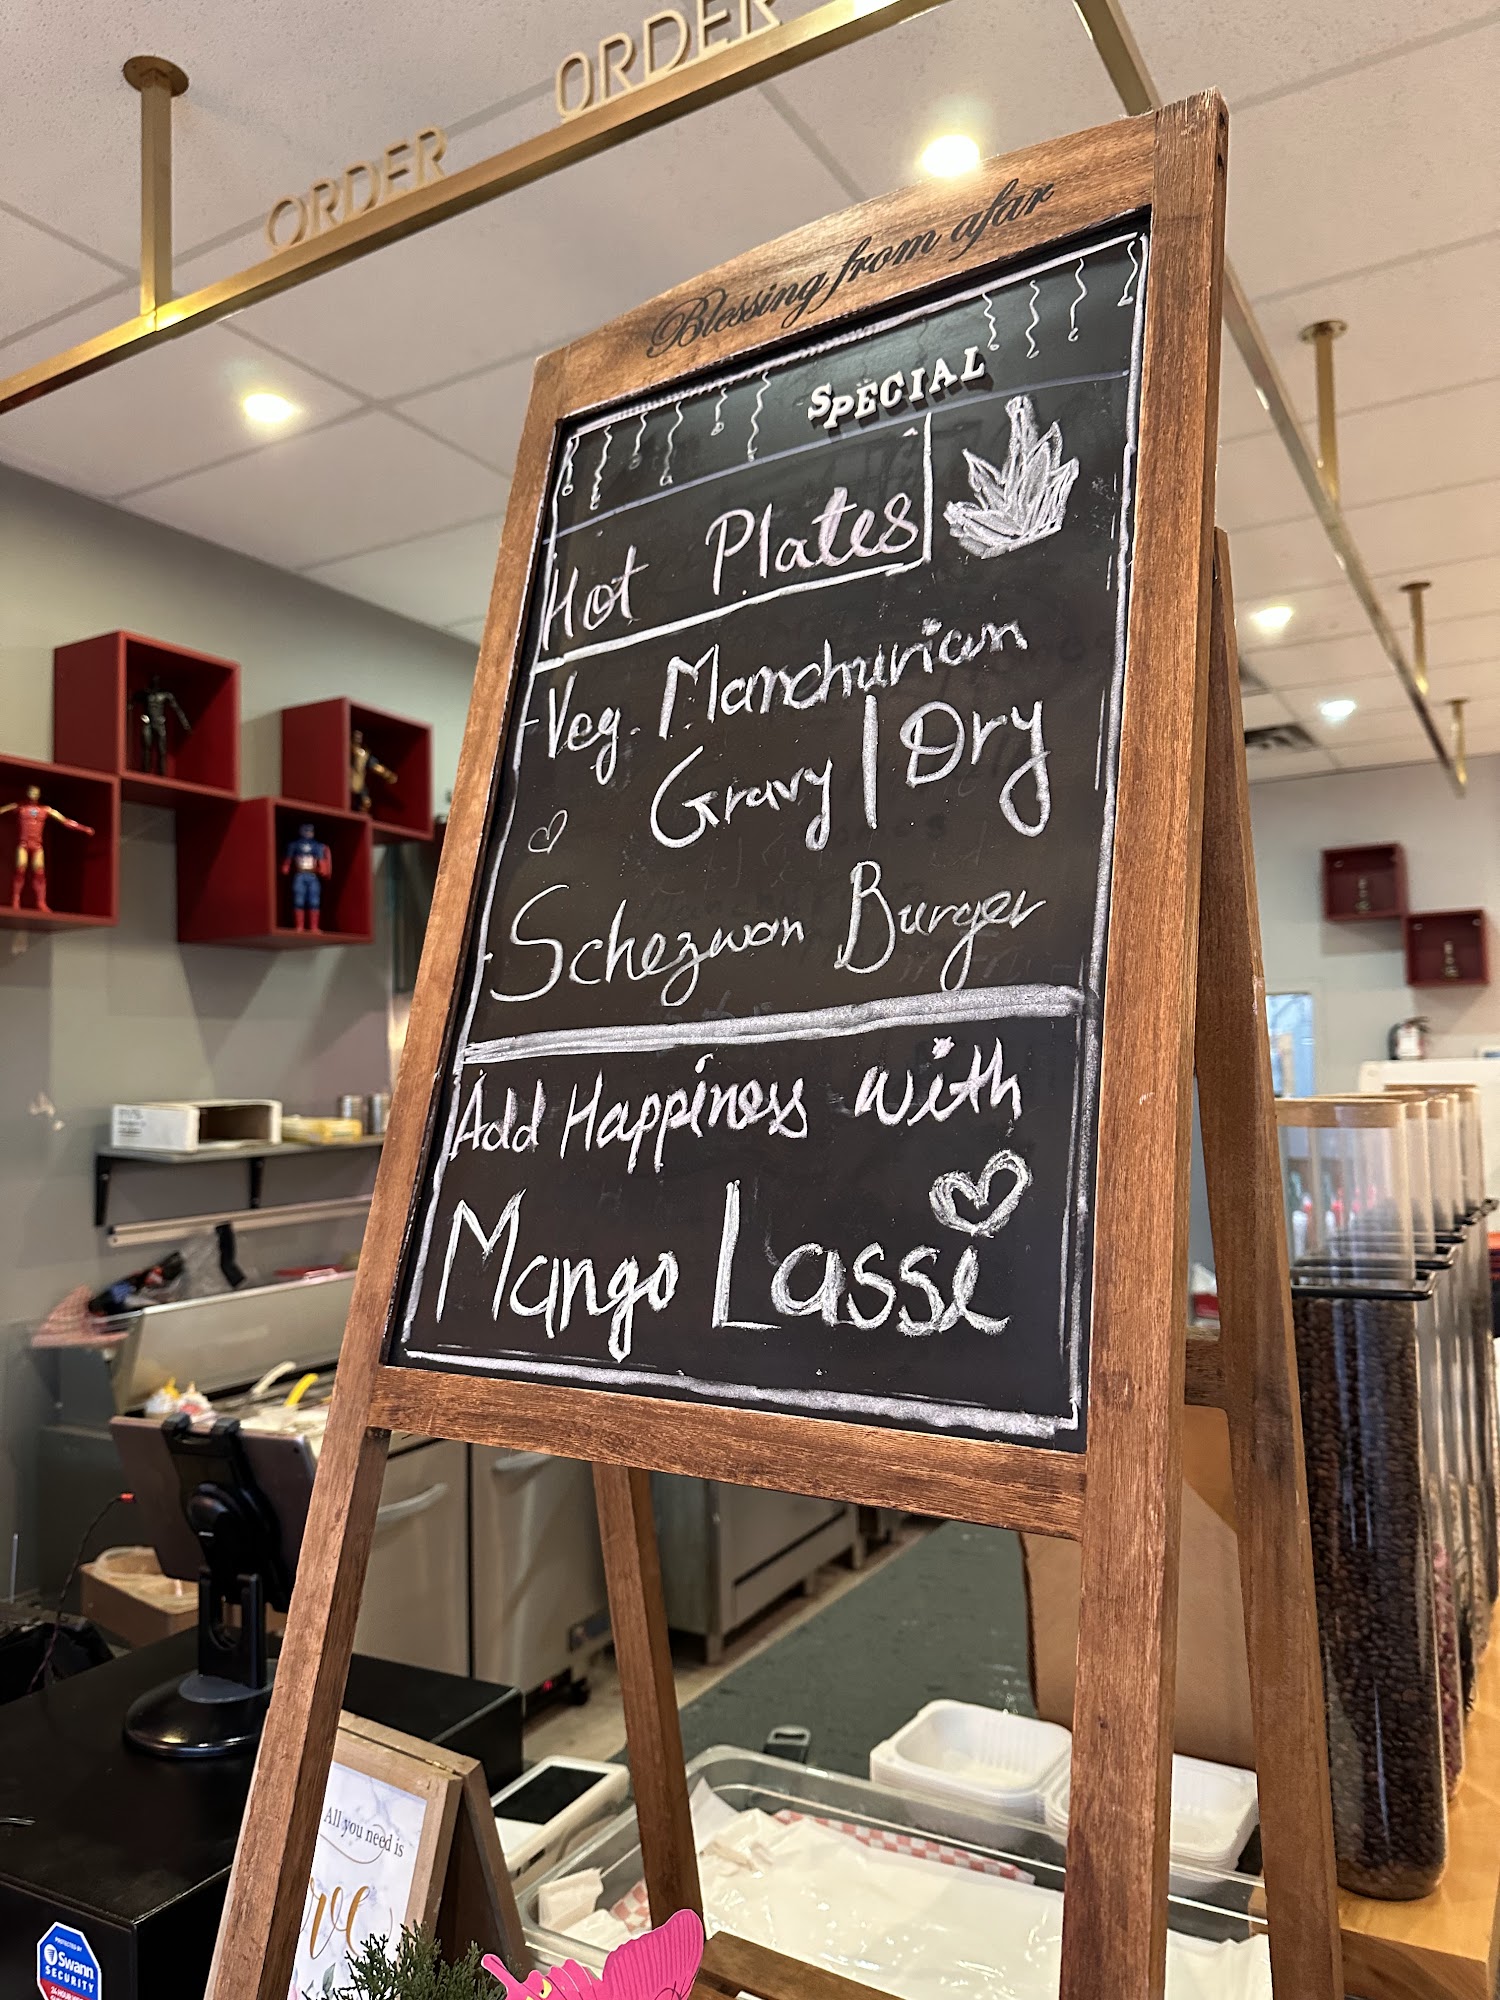 ORDER
ORDER
Blessing from afar
SPECIAL
Hot Plates
- Veg. Manchurian
Gravy | Dry
- Schezwon Burger
Add Happiness with
Mango Lassi
All you need is
PROTECTED BY
Swann
SECURITY